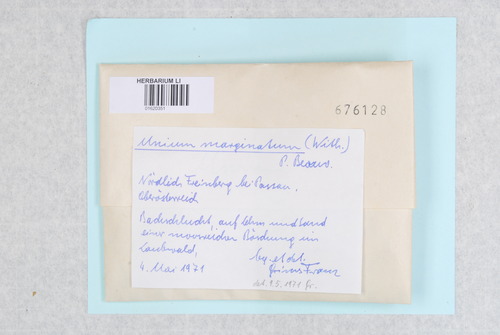 HERBARIUM LI
676128
Mnium marginatum (With.)
P. Beauv.
Nördlich Freinberg bei Passau,
Oberösterreich
Bachschlucht, auf Lehm und Sand
einer moosreichen Böschung im
Laubwald,
4. Mai 1971
leg. et det.
Grims Franz
1971 Fr.